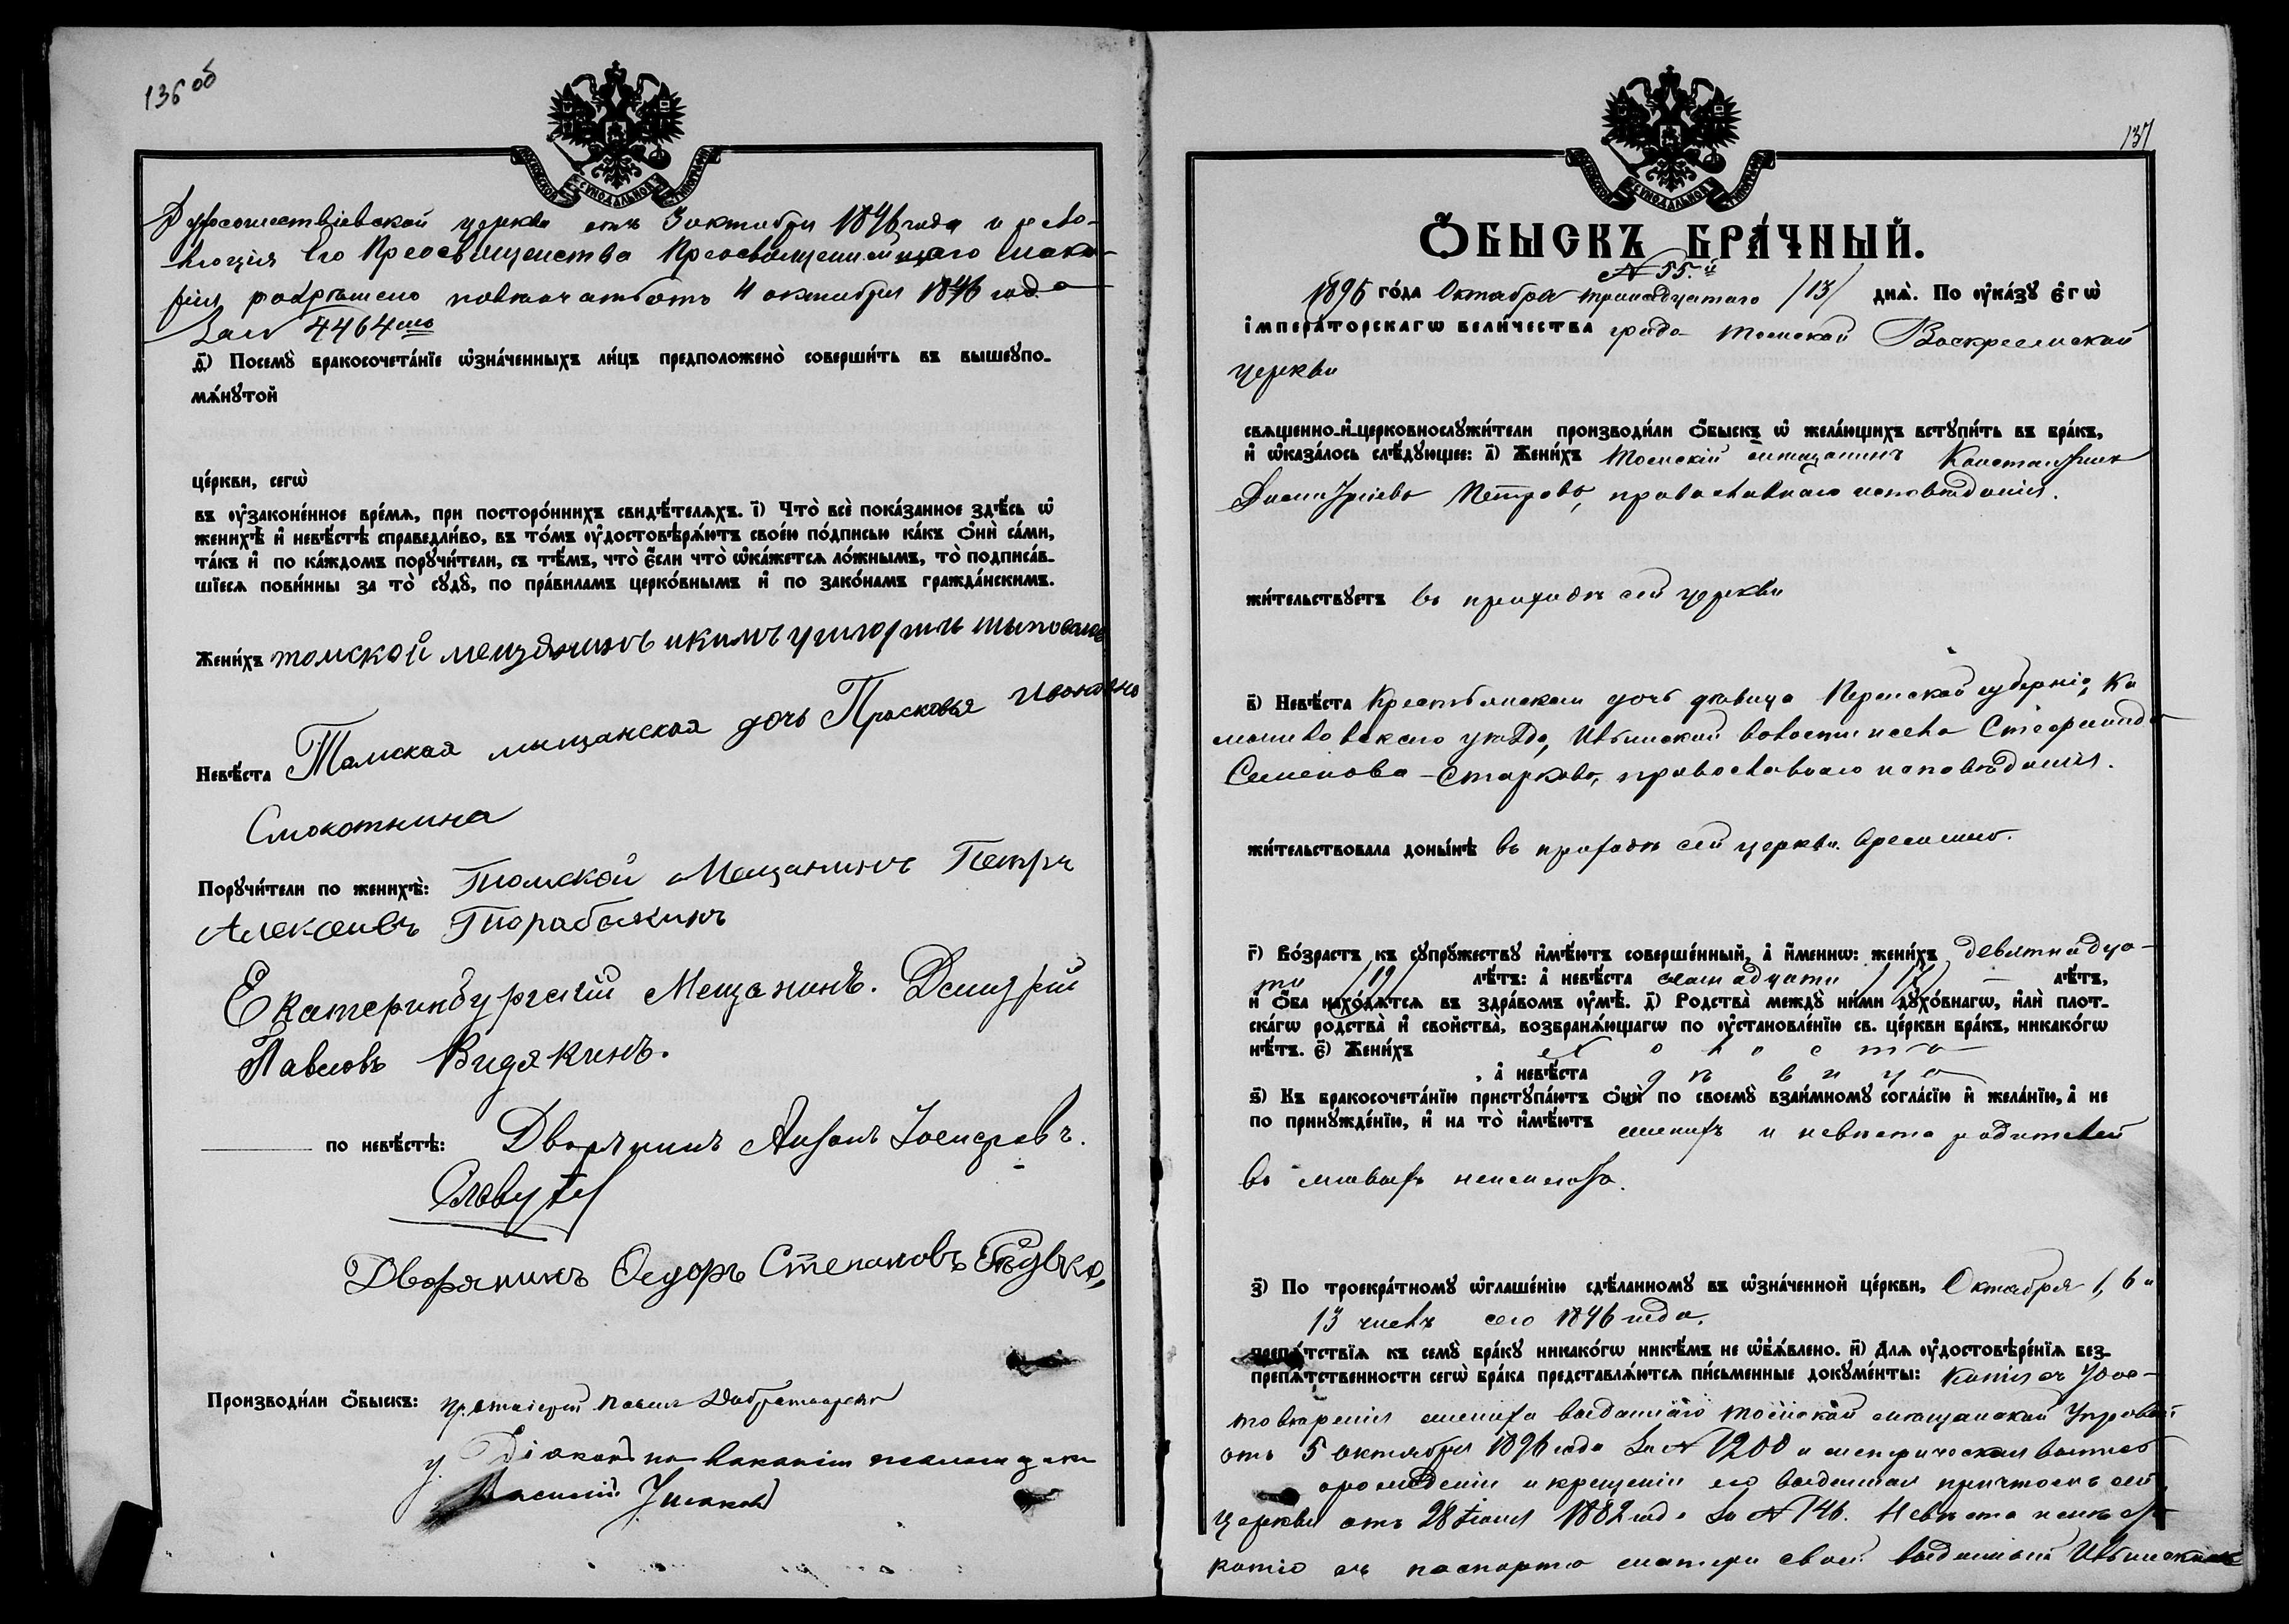 136 об
Духосошественской церкви отъ 3 октября 1896 года и резо-
люция Его Преосвященства Преосвященнейшаго Мака-
рія, разрешено повенчать отъ 4 октября 1896 года
за № 4464мъ
ѳ҃) Посемꙋ̀ бракосочета́нїе ѡ҆зна́ченныхъ ли́цъ предположено̀ соверши́ть въ вышеупо-
мѧ́нꙋтой
це́ркви, сегѡ̀
въ ᲂу҆законе́нное вре́мѧ, при посторо́ннихъ свидѣ́телѧхъ. і҃) Что̀ всѐ пока́занное здѣ́сь ѡ҆
женихѣ̀ и҆ невѣ́стѣ справедли́во, въ то́мъ ᲂу҆достовѣрѧ́ютъ свое́ю по́дписью ка́къ ѻ҆нѝ са́ми,
та́къ и҆ по ка́ждомъ порꙋчи́тели, съ тѣ́мъ, что̀ є҆́сли что̀ ѡ҆ка́жетсѧ ло́жнымъ, то̀ подписа́в-
шїесѧ пови́нны за то̀ сꙋдꙋ̀, по пра́виламъ церко́внымъ и҆ по зако́намъ гражда́нскимъ.
Жени́хъ томской мещанинъ
Невѣ́ста Томская мещанская дочь Прасковья Ивановна
Смокотнина
Порꙋчи́тели по женихѣ̀: Томской Мещанинъ Петръ
Алексеивъ Тарабыкинъ
Екатеринбургский Мещанинъ. Дмитрий
Павловъ Видякинъ.
по невѣ́стѣ: Дворянинъ Антонъ Іосифовъ.
Дворянинъ Федоръ Степановъ
Производи́ли ѻ҆́быскъ: протоіерей Павелъ
Діаконъ на вакансіи псаломщика
Василій Ушаковъ
МОСКОВСКОЙ СѴНОДАЛЬНОЙ ТИПОГРАФІИ
137
Ѻ҆́БЫСКЪ БРА́ЧНЫЙ.
№ 55.й
1896 го́да Октября тринадцатаго /13/ днѧ̀. По ᲂу҆ка́зꙋ є҆гѡ̀
і҆мпера́торскагѡ вели́чества града Томской Воскресенской
церкви
свѧщенно-и҆-церковнослꙋжи́тели производи́ли ѻ҆́быскъ ѡ҆ жела́ющихъ встꙋпи́ть въ бра́къ,
и҆ ѡ҆каза́лось слѣ́дꙋющее: а҃) Жени́хъ Томскій мещанинъ Константинъ
Дмитріевъ Петровъ, православнаго исповеданія.
жи́тельствꙋетъ въ приходе сей церкви
в҃) Невѣ́ста Крестьянская дочь девица Пермской губерніи, Ка
мышловскаго уезда, волости и села Стефанида
Семенова Старкова, православнаго исповеданія.
жи́тельствовала доны́нѣ въ приходе сей церкви временно.
г҃) Во́зрастъ къ сꙋпрꙋ́жествꙋ и҆мѣ́ютъ соверше́нный, а҆ и҆́меннѡ: жени́хъ девятнадца-
ти /19/ лѣ́тъ: а҆ невѣ́ста семнадцати /17/ лѣ́тъ,
и҆ ѻ҆́ба нахо́дѧтсѧ въ здра́вомъ ᲂу҆мѣ̀. д҃) Родства̀ междꙋ̀ ни́ми дꙋхо́внагѡ, и҆лѝ плот-
ска́гѡ родства̀ и҆ свойства̀, возбранѧ́ющагѡ по ᲂу҆становле́нїю св. це́ркви бра́къ, никако́гѡ
нѣ́тъ. є҃) Жени́хъ холостъ
, а҆ невѣ́ста девица
ѕ҃) Къ бракосочета́нїю пристꙋпа́ютъ ѻ҆нѝ по своемꙋ̀ взаи́мномꙋ согла́сїю и҆ жела́нїю, а҆ не
по принꙋжде́нїю, и҆ на то̀ и҆мѣ́ютъ женихъ и невеста родителей
въ живыхъ неимеютъ.
з҃) По троекра́тномꙋ ѡ҆глаше́нїю сдѣ́ланномꙋ въ ѡ҆зна́ченной це́ркви, Октября 1, 6 и
13 числъ сего 1896 года.
препѧ́тствїѧ къ семꙋ̀ бра́кꙋ никако́гѡ никѣ́мъ не ѡ҆б̾ѧ́влено. и҃) Для ᲂу҆достовѣре́нїѧ без-
препѧ́тственности сегѡ̀ бра́ка представлѧ́ютсѧ пи́сьменные докꙋме́нты: Копія съ удос-
товеренія жениха выданнаго Томской мещанской Управой
отъ 5 октября 1896 года за № 1200 и метрическая выпись
о рожденіи и крещеніи его выданная причтомъ сей
церкви отъ 28 1882 года за № 146. Невеста имеетъ
копію съ паспорта матери своей выданный
МОСКОВСКОЙ СѴНОДАЛЬНОЙ ТИПОГРАФІИ